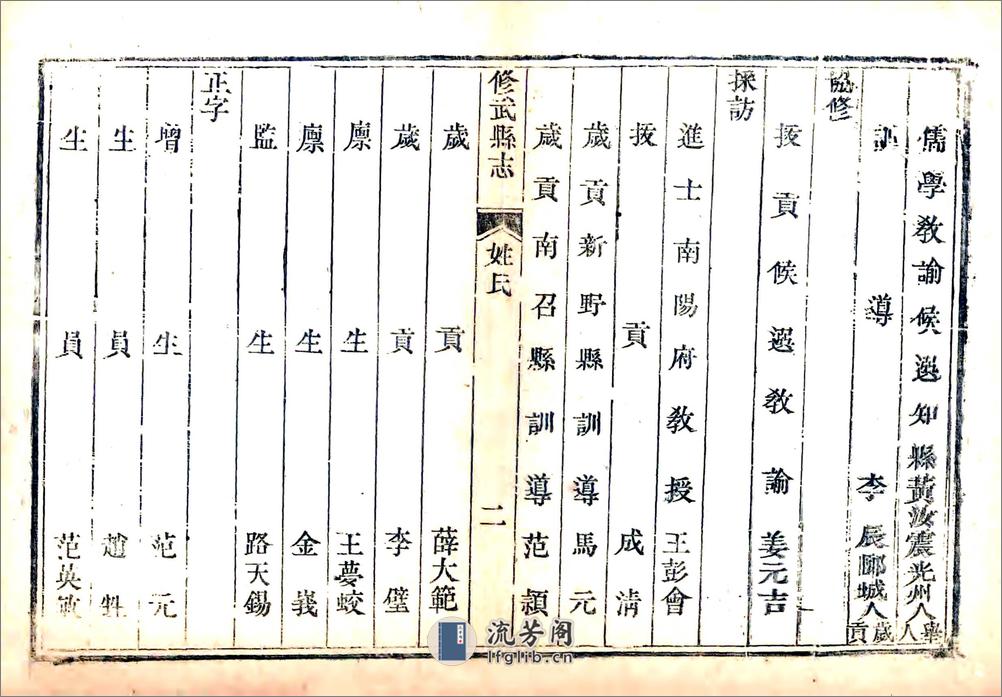 儒學教諭候選知縣黃汝震光州人舉人
訓導李辰郾城人歲貢
協修
拔貢候選教諭姜元吉
採訪
進士南陽府教授王彭會
拔貢成淸
歲貢新野縣訓導馬元
歲貢南召縣訓導范頴
修武縣志
姓氏
二
歲貢薛大範
歲貢李璧
廪生王夢蛟
廪生金義
監生路天錫
正字
增生范元
生員趙甡
生員范英
流芳阁
lfglib.cn